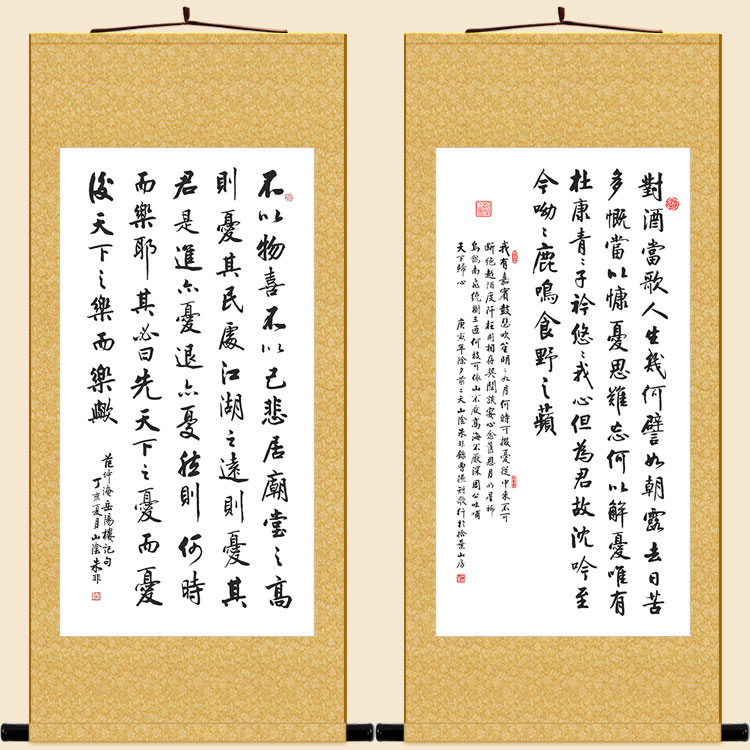 對酒當歌人生幾何譬如朝露去日苦
多慨當以慷憂思難忘何以解憂唯有
杜康青〻子衿悠〻我心但為君故沈吟至
今呦〻鹿鳴食野之蘋
我有嘉賓鼓瑟吹笙明〻如月何時可掇憂從中來不可
斷絕越陌度阡枉用相存契闊談宴心念舊恩月明星稀
烏鵲南飛繞樹三匝何枝可依山不厭高海不厭深周公吐哺
天下歸心 庚寅年除夕前二天山陰朱非錄曹操短歌行於拾葉山房
不以物喜不以己悲居廟堂之高
則憂其民處江湖之遠則憂其
君是進亦憂退亦憂然則何時
而樂耶其必曰先天下之憂而憂
後天下之樂而樂歟
范仲淹岳陽樓記句
丁亥夏月山陰朱非